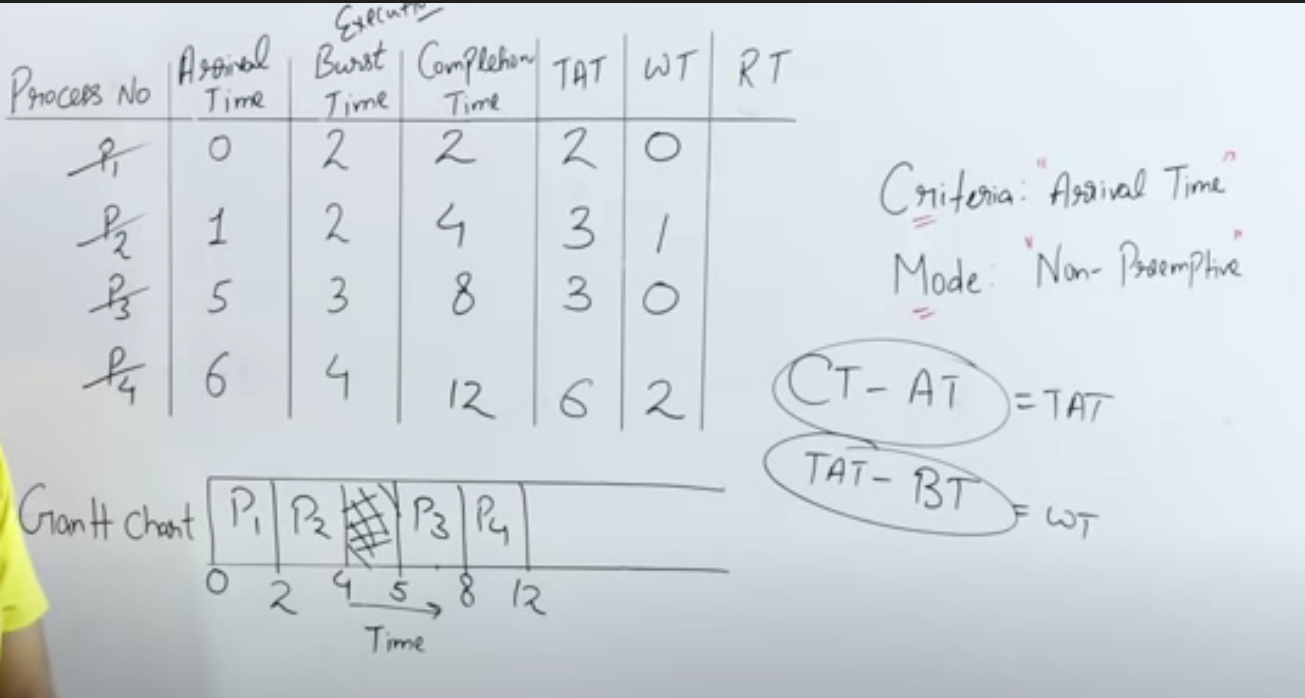 Execution
Process No Arrival Time Burst Time Completion Time TAT WT RT
P1 0 2 2 2 0
P2 1 2 4 3 1
P3 5 3 8 3 0
P4 6 4 12 6 2
Criteria: "Arrival Time"
Mode: "Non-Preemptive"
CT - AT = TAT
TAT - BT = WT
Gantt Chart P1 P2 P3 P4
0 2 4 5 8 12
Time